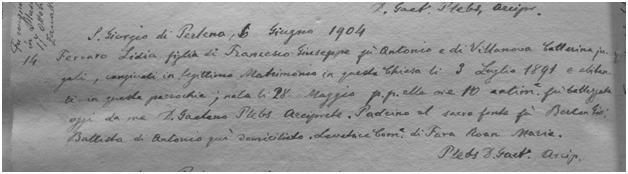 D. Gaet. Plebs, Arcipr.
S. Giorgio di Perlena, 6 Giugno 1904
14
Ferraro Lidia, figlia di Francesco Giuseppe fu Antonio e di Villanova Catterina ju-
gali, congiunti in legittimo Matrimonio in questa Chiesa li 3 Luglio 1891 e abitan-
ti in questa parrochia; nata li 28 Maggio p.p. alle ore 10 antim. fu battezzata
oggi da me D. Gaetano Plebs Arciprete. Padrino al sacro fonte fu Berton Gio.
Battista di Antonio quì domiciliato. Levatrice Com. di Fara Roan Maria.
Plebs D. Gaet. Arcip.